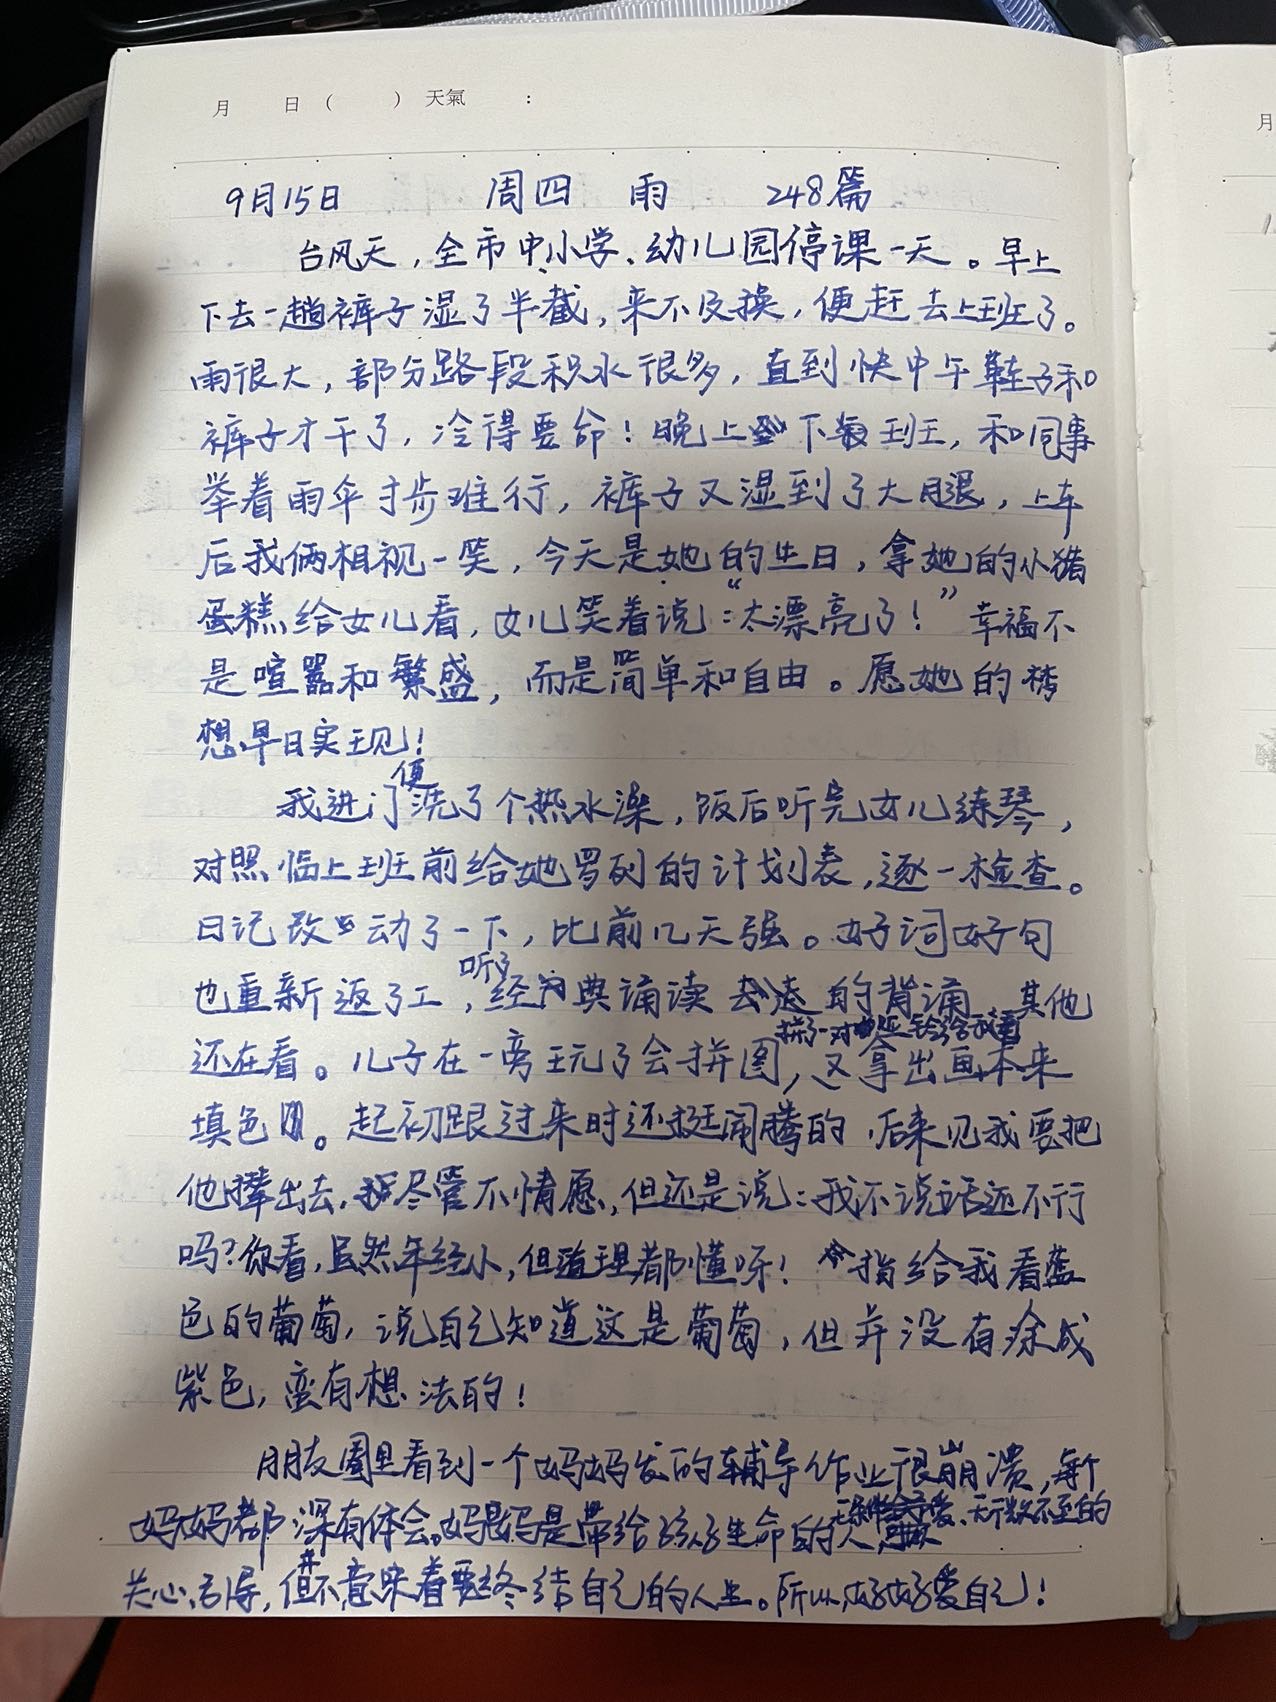 月 日 ( ) 天氣 :
月
9月15日 周四 雨 248篇
台风天,全市中、小学、幼儿园停课一天。早上
下去一趟裤子湿了半截,来不及换,便赶去上班了。
雨很大,部分路段积水很多,直到快中午鞋子和
裤子才干了,冷得要命!晚上下班,和同事
举着雨伞寸步难行,裤子又湿到了大腿,上车
后我俩相视一笑,今天是她的生日,拿她的小猪
蛋糕给女儿看,女儿笑着说:“太漂亮了!”幸福不
是喧嚣和繁盛,而是简单和自由。愿她的梦
想早日实现!
我进门便洗了个热水澡,饭后听完女儿练琴,
对照临上班前给她罗列的计划表,逐一检查。
日记改动了一下,比前几天强。好词好句
也重新返了工,听了经典诵读的背诵,其他
还在看。儿子在一旁玩了会拼图,拼了一对给我看,又拿出画本来
填色。起初跟过来时还挺闹腾的,后来见我要把
他撵出去,尽管不情愿,但还是说:我不说话还不行
吗?你看,虽然年纪小,但道理都懂呀!指给我看蓝
色的葡萄,说自己知道这是葡萄,但并没有涂成
紫色,蛮有想法的!
朋友圈里看到一个妈妈发的辅导作业很崩溃,每个
妈妈都深有体会。妈妈是带给孩子生命的人,无微不至的
关心,但并不意味着要终结自己的人生。所以,好好爱自己!